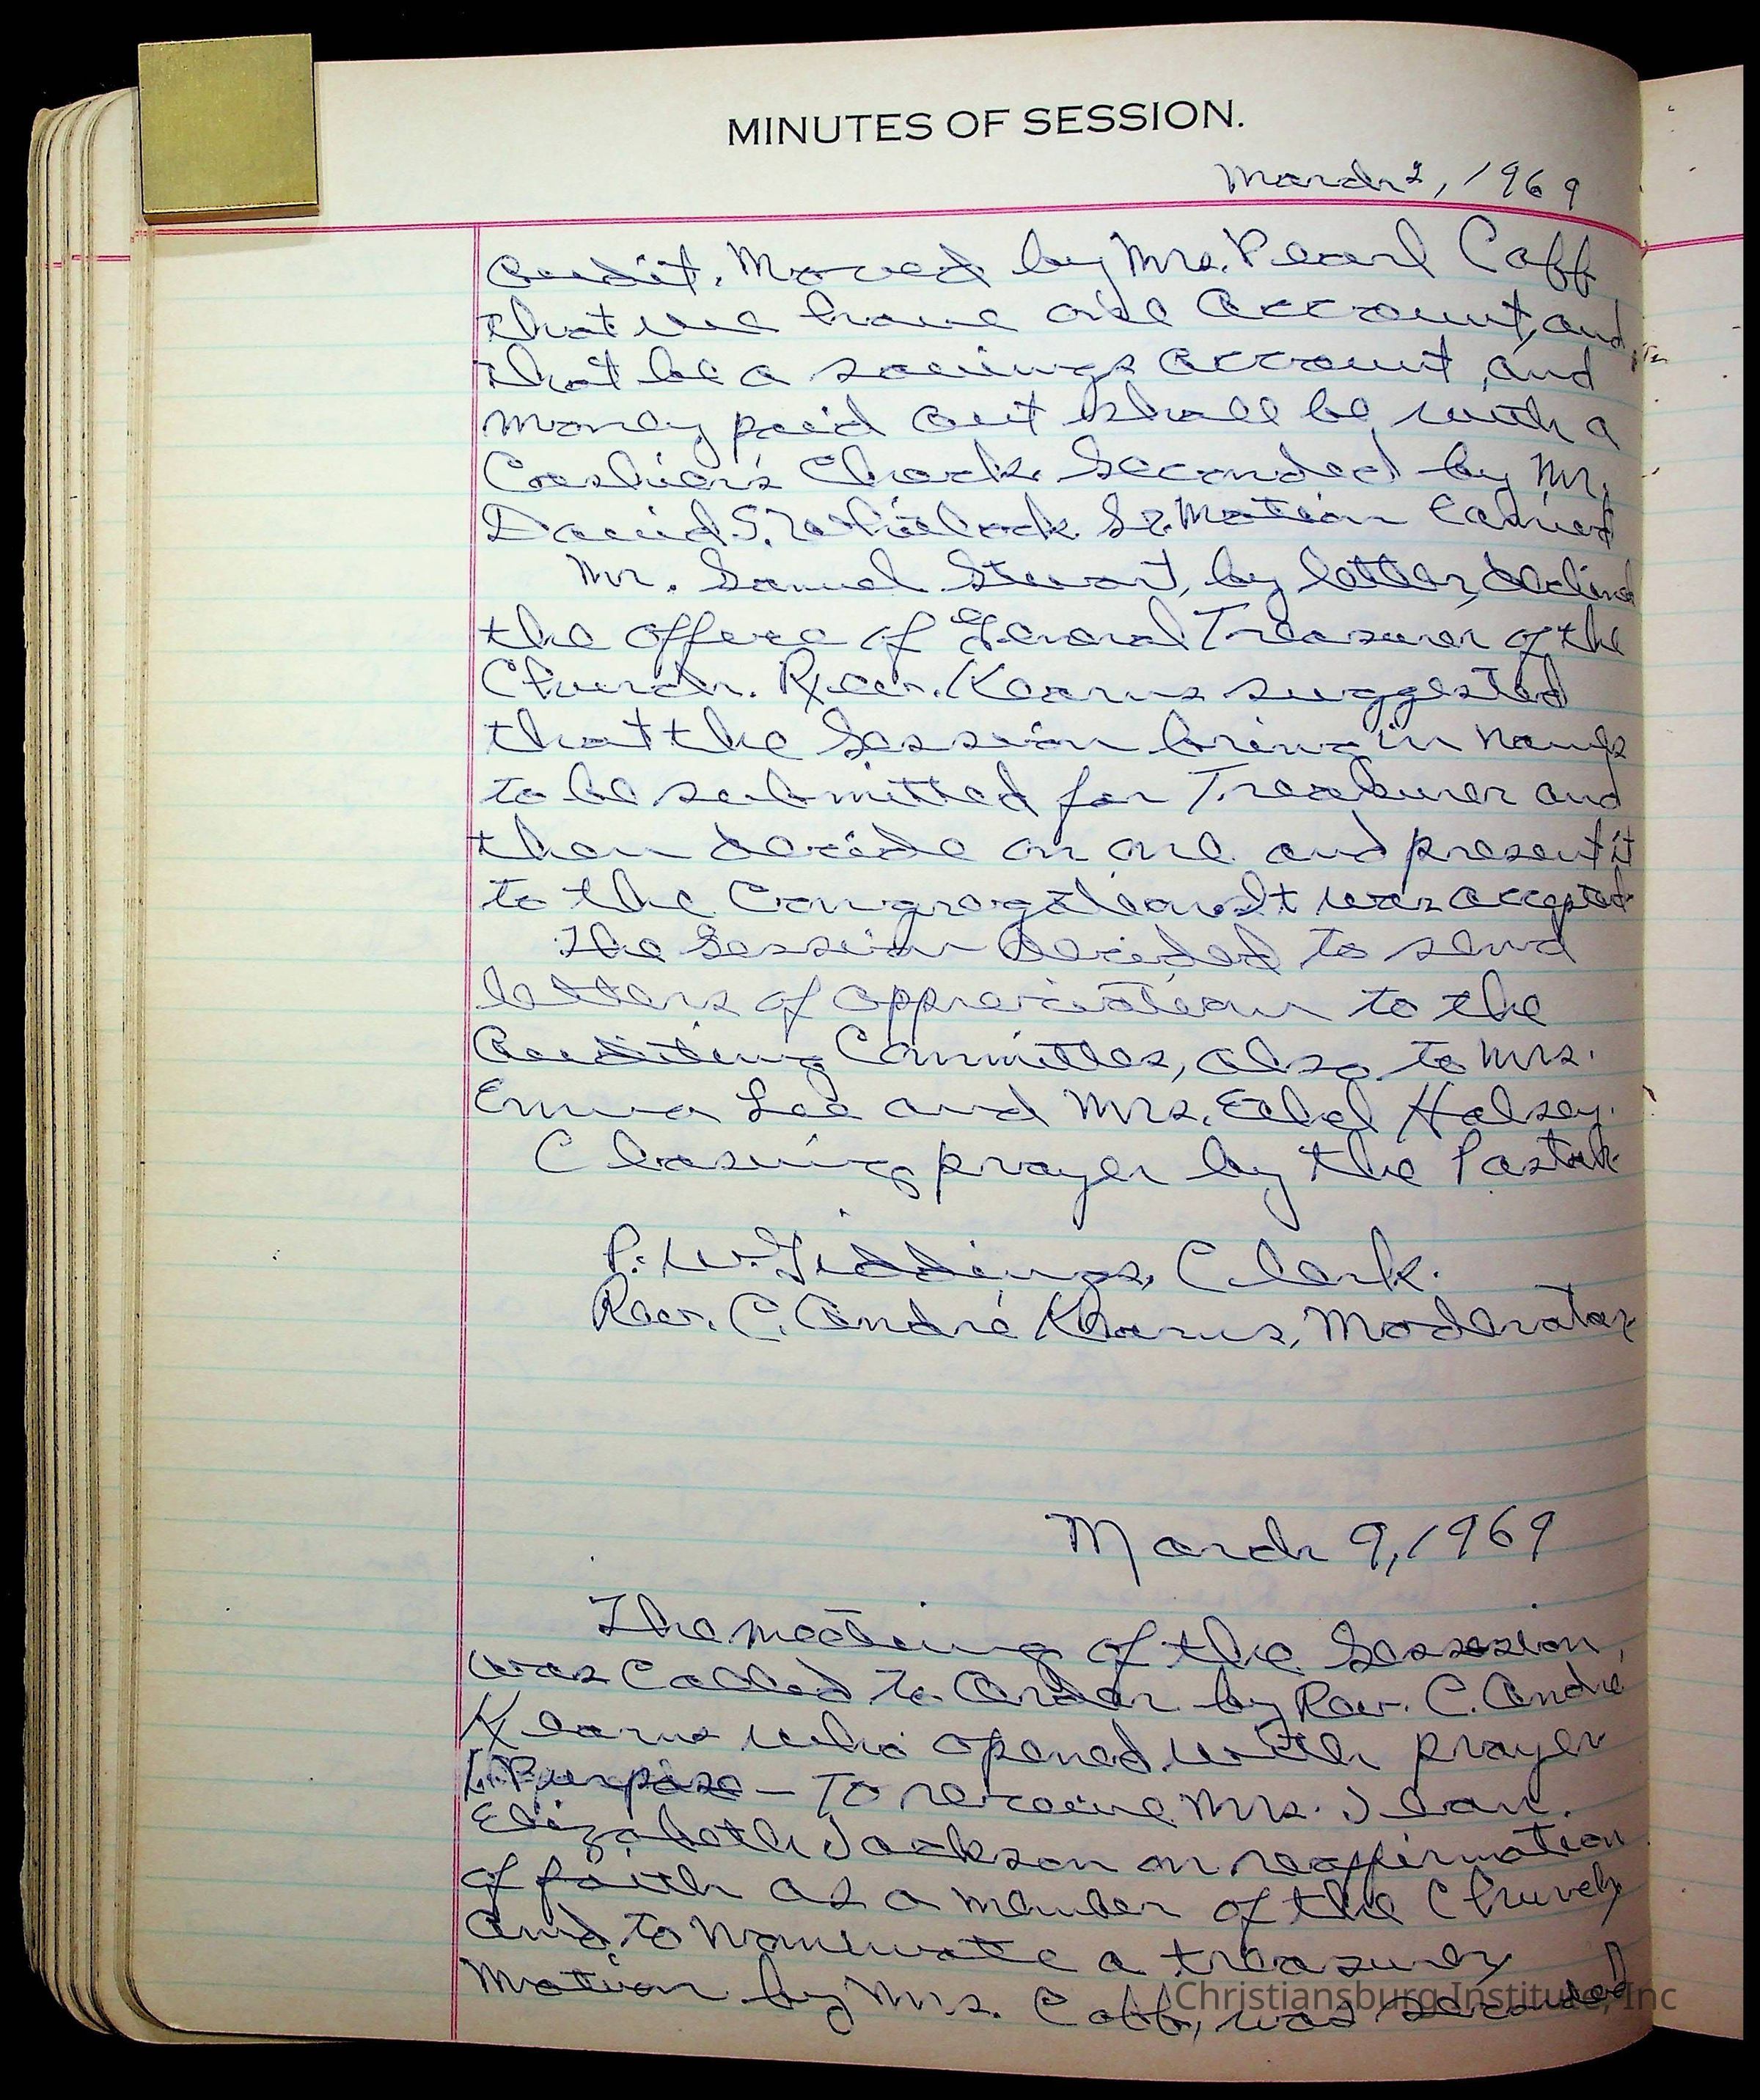 MINUTES OF SESSION.
March 2, 1969
audit. Moved by Mrs. Pearl Cobb
that we have one account, and
that be a savings account, and
money paid out shall be with a
Cashier's Check. Seconded by Mr.
David S. Whitlock Sr. Motion Carried
Mr. Samuel Stewart, by letter, declined
the office of General Treasurer of the
Church. Rev. Kearns suggested
that the Session bring in names
to be submitted for Treasurer and
then decide on one and present it
to the Congregation. It was accepted.
The Session decided to send
letters of appreciation to the
Auditing Committee, also to Mrs.
Emma Lee and Mrs. Ethel Halsey.
Closing prayer by the Pastor.
P. W. Giddings, Clerk.
Rev. C. André Kearns, Moderator
March 9, 1969
The meeting of the Session,
was called to order by Rev. C. André
Kearns who opened with prayer
Purpose – To receive Mrs. Jean
Elizabeth Jackson on reaffirmation
of faith as a member of the Church
and to nominate a treasurer
Motion by Mrs. Cobb, was seconded
Christiansburg Institute, Inc